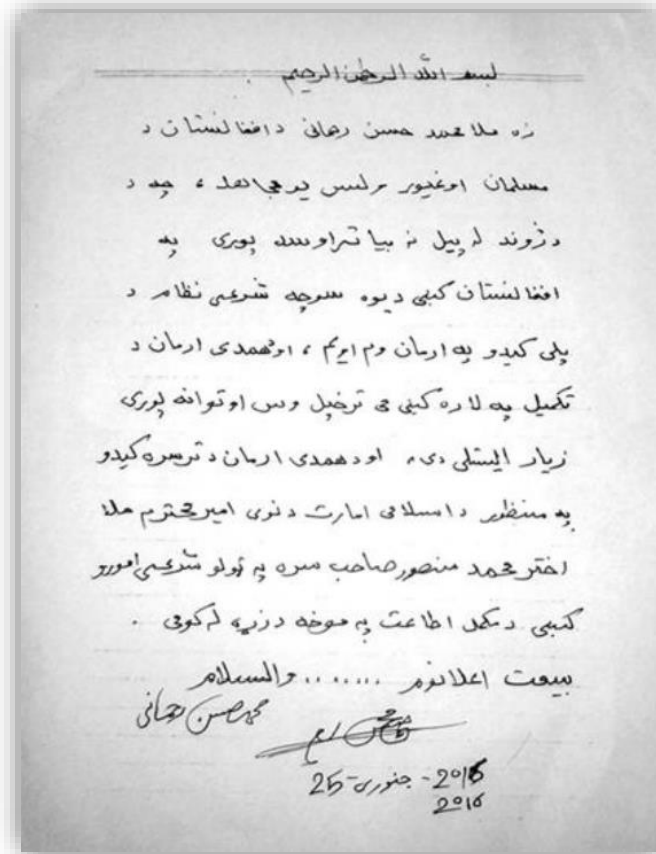 بسم الله الرحمن الرحیم
زه ملا محمد حسن رحمانی د افغانستان د
مسلمان او غیور ولس یو مجاهد، چه د
د ژوند له پیل نه بیا تر اوسه پوری په
افغانستان کښی د یوه سوچه شرعی نظام د
پلی کیدو په ارمان وم او یم، او همدی ارمان د
تکمیل په لاره کښی می تر خپل وس او توانه پوری
زیار ایستلی دی، او د همدی ارمان د ترسره کیدو
په منظور د اسلامی امارت د نوی امیر محترم ملا
اختر محمد منصور صاحب سره په ټولو شرعی امورو
کښی د مکمل اطاعت په موخه د زړه له کومی.
بیعت اعلانوم ....... والسلام
محمد حسن رحمانی
25-جنوری-2016
2016